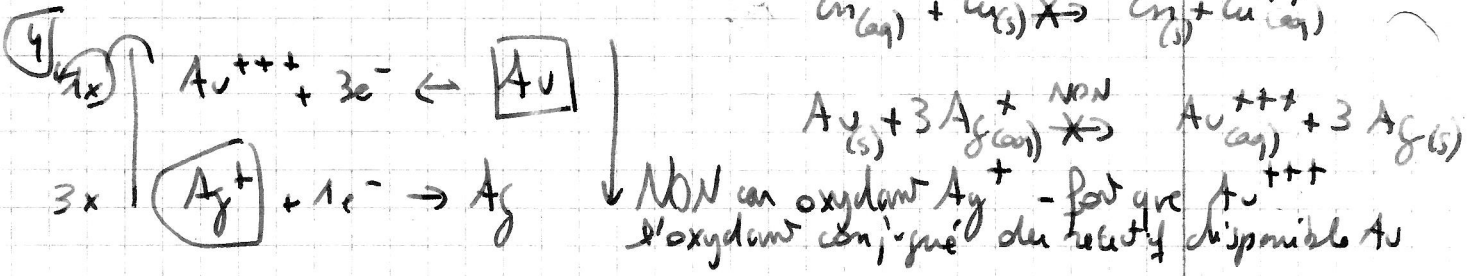 (aq) + Cu(s) ⇏ (s) + Cu (aq)
4) 1x Au+++ + 3e- ← Au
Au(s) + 3 Ag+(aq) NON ⇏ Au+++(aq) + 3 Ag(s)
3x Ag+ + 1e- → Ag
NON car oxydant Ag+ - fort que Au+++
l'oxydant conjugué du réactif disponible Au